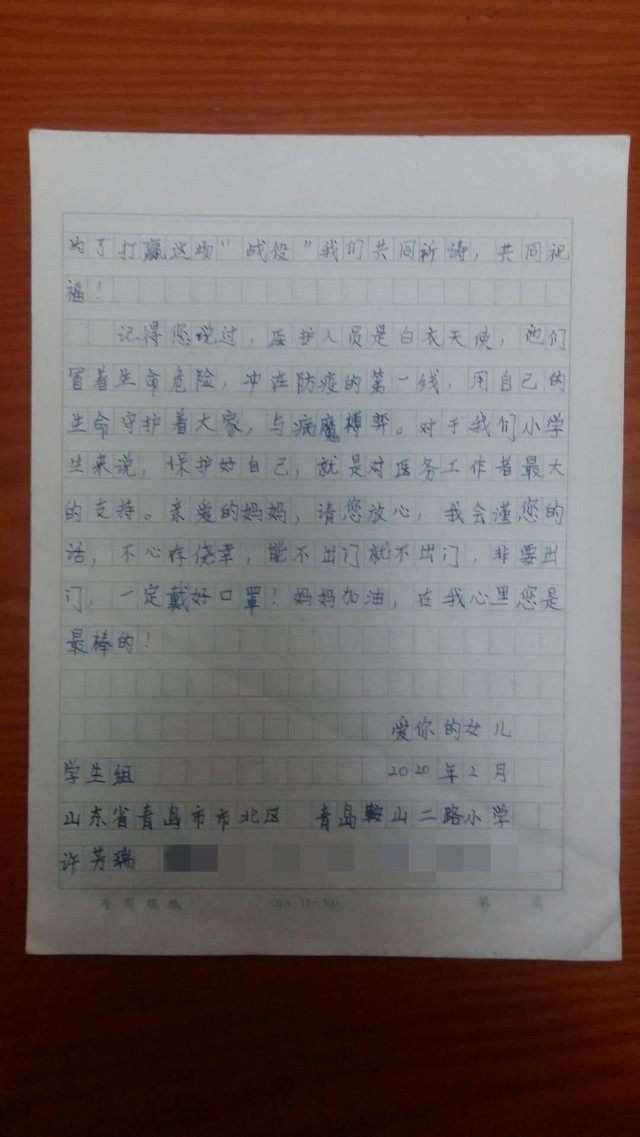 为了打赢这场“战役”我们共同祈祷，共同祝
福！
记得您说过，医护人员是白衣天使，他们
冒着生命危险，冲在防疫的第一线，用自己的
生命守护着大家，与病魔搏弈。对于我们小学
生来说，保护好自己，就是对医务工作者最大
的支持。亲爱的妈妈，请您放心，我会谨您的
话，不心存侥幸，能不出门就不出门，非要出
门，一定戴好口罩！妈妈加油，在我心里您是
最棒的！
爱你的女儿
学生组 2020年2月
山东省青岛市市北区 青岛鞍山二路小学
许芳瑞
第 页